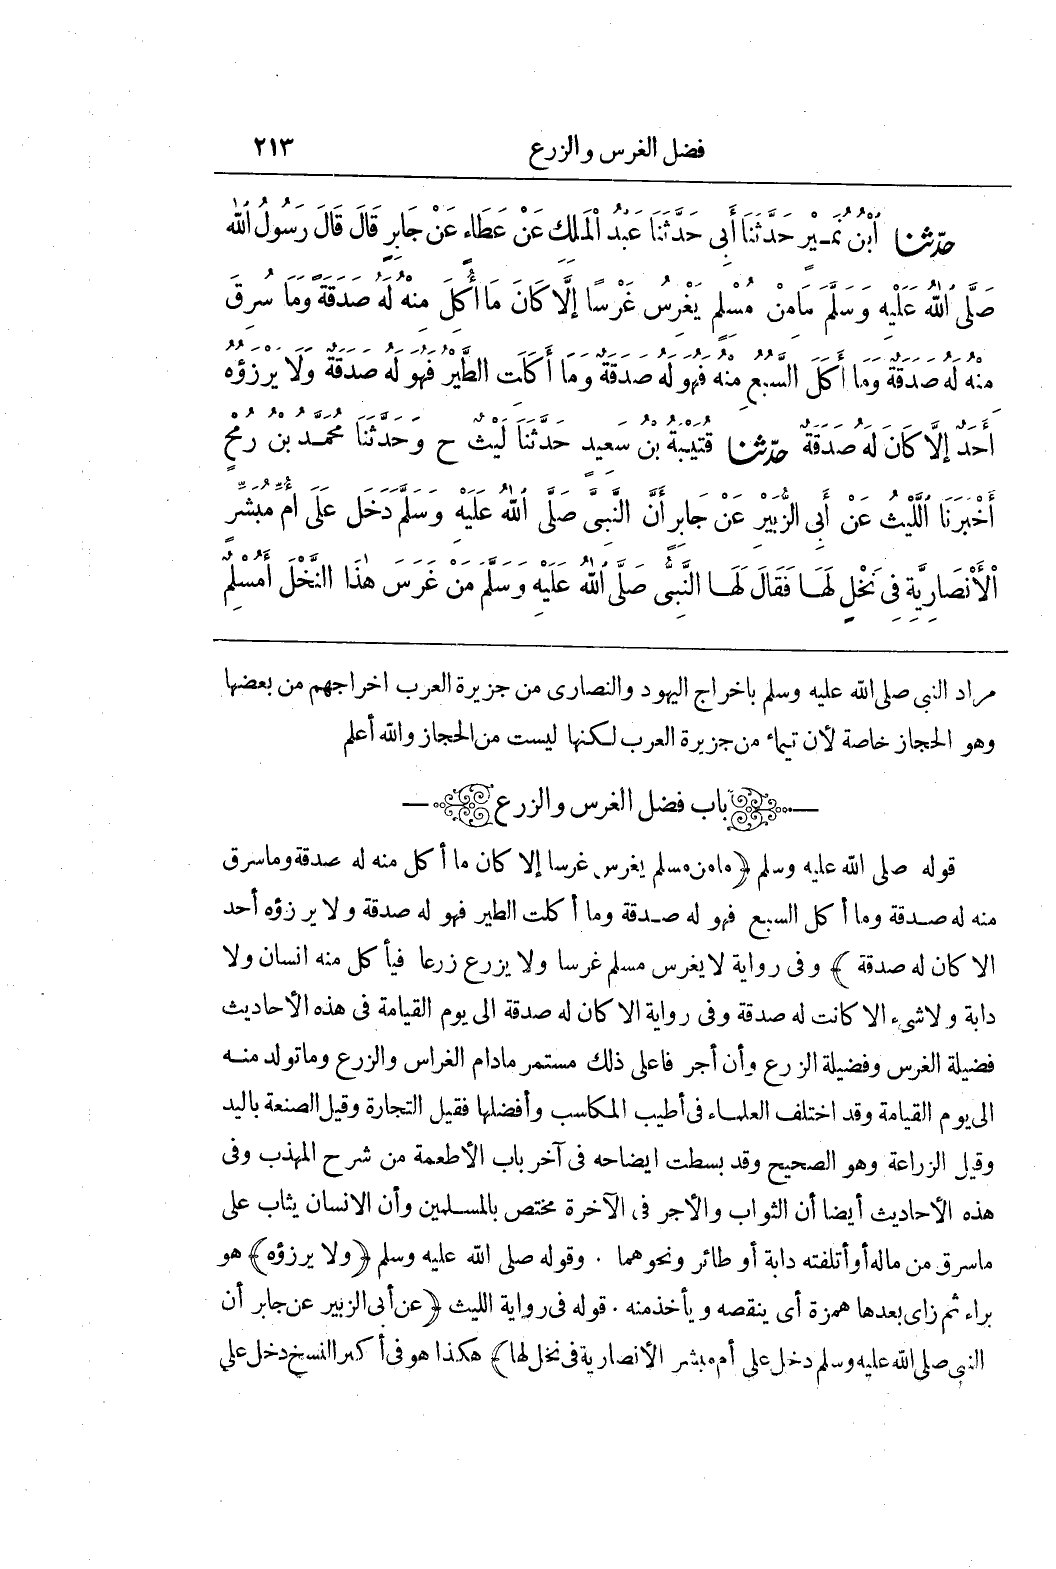 فضل الغرس والزرع ٢١٣
حدّثنا ٱبْنُ نُمَيْرٍ حَدَّثَنَا أَبِى حَدَّثَنَا عَبْدُ ٱلْمَلِكِ عَنْ عَطَاءٍ عَنْ جَابِرٍ قَالَ قَالَ رَسُولُ ٱللهِ
صَلَّى ٱللهُ عَلَيْهِ وَسَلَّمَ مَامِنْ مُسْلِمٍ يَغْرِسُ غَرْسًا إِلَّا كَانَ مَا أُكِلَ مِنْهُ لَهُ صَدَقَةٌ وَمَا سُرِقَ
مِنْهُ لَهُ صَدَقَةٌ وَمَا أَكَلَ السَّبُعُ مِنْهُ فَهُوَ لَهُ صَدَقَةٌ وَمَا أَكَلَتِ الطَّيْرُ فَهُوَ لَهُ صَدَقَةٌ وَلَا يَرْزَؤُهُ
أَحَدٌ إِلَّا كَانَ لَهُ صَدَقَةٌ حدّثنا قُتَيْبَةُ بْنُ سَعِيدٍ حَدَّثَنَا لَيْثٌ ح وَحَدَّثَنَا مُحَمَّدُ بْنُ رُمْحٍ
أَخْبَرَنَا ٱللَّيْثُ عَنْ أَبِى الزُّبَيْرِ عَنْ جَابِرٍ أَنَّ النَّبِىَّ صَلَّى ٱللهُ عَلَيْهِ وَسَلَّمَ دَخَلَ عَلَى أُمِّ مُبَشِّرٍ
ٱلْأَنْصَارِيَّةِ فِى نَخْلٍ لَهَا فَقَالَ لَهَا النَّبِىُّ صَلَّى ٱللهُ عَلَيْهِ وَسَلَّمَ مَنْ غَرَسَ هٰذَا النَّخْلَ أَمُسْلِمٌ
مراد النبى صلى الله عليه وسلم باخراج اليهود والنصارى من جزيرة العرب اخراجهم من بعضها
وهو الحجاز خاصة لأن تيماء من جزيرة العرب لكنها ليست من الحجاز والله أعلم
باب فضل الغرس والزرع
قوله صلى الله عليه وسلم ﴿مامن مسلم يغرس غرسا إلا كان ما أكل منه له صدقة وماسرق
منه له صدقة وما أكل السبع فهو له صدقة وما أكلت الطير فهو له صدقة ولا يرزؤه أحد
الا كان له صدقة﴾ وفى رواية لايغرس مسلم غرسا ولا يزرع زرعا فيأكل منه انسان ولا
دابة ولاشىء الا كانت له صدقة وفى رواية الا كان له صدقة الى يوم القيامة فى هذه الأحاديث
فضيلة الغرس وفضيلة الزرع وأن أجر فاعلى ذلك مستمر مادام الغراس والزرع وماتولد منه
الى يوم القيامة وقد اختلف العلماء فى أطيب المكاسب وأفضلها فقيل التجارة وقيل الصنعة باليد
وقيل الزراعة وهو الصحيح وقد بسطت ايضاحه فى آخر باب الأطعمة من شرح المهذب وفى
هذه الأحاديث أيضا أن الثواب والأجر فى الآخرة مختص بالمسلمين وأن الانسان يثاب على
ماسرق من ماله أو أتلفته دابة أو طائر ونحوهما . وقوله صلى الله عليه وسلم ﴿ولا يرزؤه﴾ هو
براء ثم زاى بعدها همزة أى ينقصه ويأخذ منه . قوله فى رواية الليث ﴿عن أبى الزبير عن جابر أن
النبى صلى الله عليه وسلم دخل على أم مبشر الأنصارية فى نخل لها﴾ هكذا هو فى أكثر النسخ دخل على